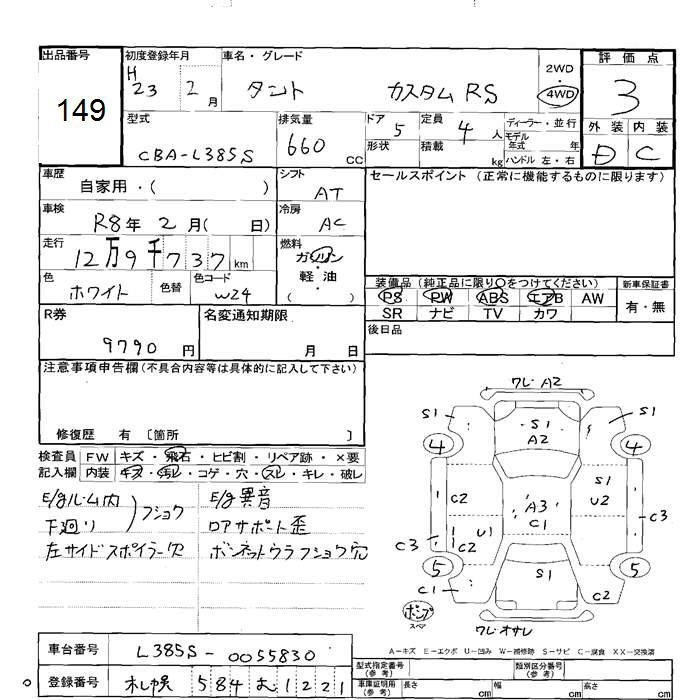 出品番号
149
初度登録年月
H 23 2 月
車名・グレード
タント カスタム RS
2WD
4WD
評価点
3
外装 内装
D C
型式
CBA-L385S
排気量
660 CC
ドア 5
形状
定員 4 人
積載 kg
ディーラー・並行
モデル年式 年
ハンドル 左・右
車歴
自家用・( )
シフト
AT
セールスポイント (正常に機能するものに限ります)
車検
R8年 2月( 日)
冷房
AC
走行
12万9千737 km
燃料
ガソリン
・
軽油
( )
色
ホワイト
色替
色コード
W24
装備品 (純正品に限り○をつけてください)
PS PW ABS エアB AW
SR ナビ TV カワ
新車保証書
有・無
R券
9790 円
名変通知期限
月 日
後日品
注意事項申告欄 (不具合内容等は具体的に記入して下さい)
修復歴 有 〔箇所 〕
検査員記入欄
FW キズ・飛石・ヒビ割・リペア跡・×要
内装 キズ・汚レ・コゲ・穴・スレ・キレ・破レ
E/gルーム内
下廻り
フショク
左サイドスポイラー穴
E/g異音
ロアサポート歪
ボンネットウラフショク穴
ワレ・A2
S1 S1 S1
A2
4 4
C2 A3 S1
C1 U2
C3 C2 U1 C3
5 S1 5
C1 C2
ポンプ
スペア
ワレ・オサレ
A-キズ E-エクボ U-凹み W-補修跡 S-サビ C-腐食 XX-交換済
車台番号
L385S-0055830
登録番号
札幌 584 む 1221
型式指定番号
(参考)
類別区分番号
(参考)
車庫証明用
(参考)
長さ cm
幅 cm
高さ cm